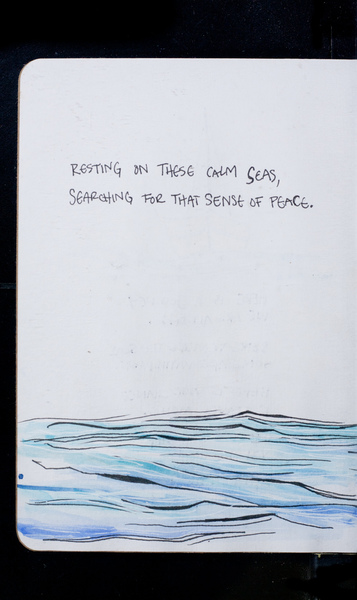 RESTING ON THESE CALM SEAS,
SEARCHING FOR THAT SENSE OF PEACE.